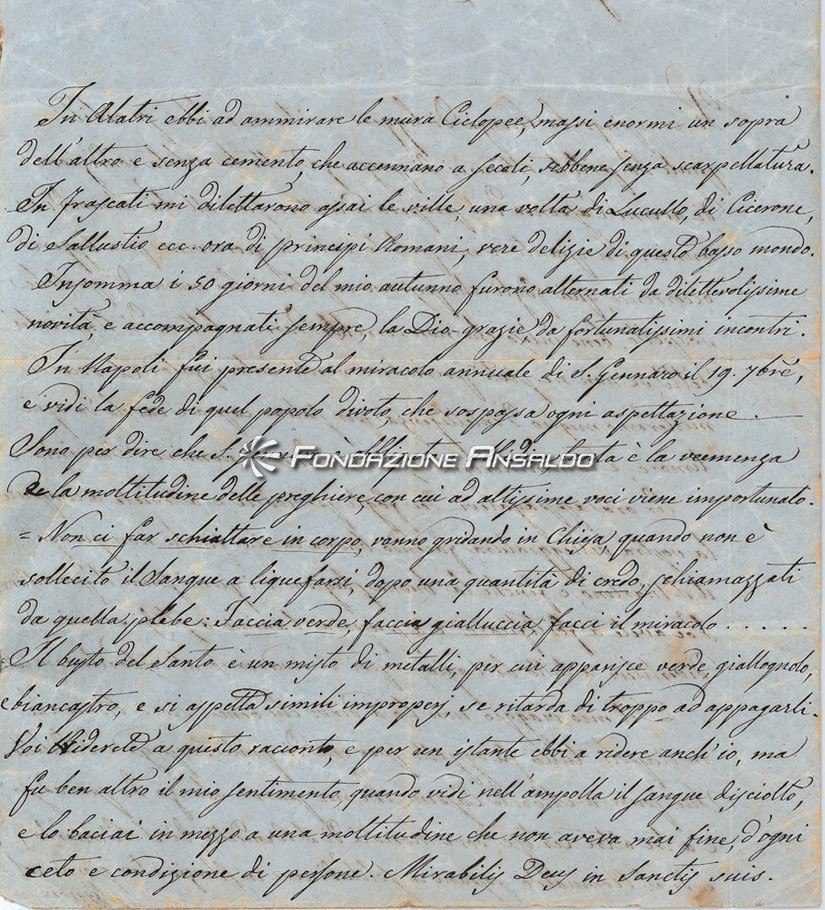 In Alatri ebbi ad ammirare le mura Ciclopee, massi enormi un sopra
dell'altro e senza cemento, che accennano a secoli, sebbene senza scarpellatura.
In Frascati mi dilettarono assai le ville, una volta di Lucullo, di Cicerone,
di Sallustio ecc. ora di principi Romani, vere delizie di questo basso mondo.
Insomma i 50 giorni del mio autunno furono alternati da dilettevolissime
novità, e accompagnati sempre, la Dio grazie, da fortunatissimi incontri.
In Napoli fui presente al miracolo annuale di S. Gennaro il 19. 7bre,
e vidi la fede di quel popolo divoto, che sospassa ogni aspettazione.
Sono per dire che S. è la veemenza
e la moltitudine delle preghiere, con cui ad altissime voci viene importunato.
= Non ci far schiattare in corpo, vanno gridando in Chiesa, quando non è
sollecito il Sangue a liquefarsi, dopo una quantità di credo, schiamazzati
da quella plebe: Faccia verde, faccia gialluccia, facci il miracolo . . . . . .
Il busto del Santo è un misto di metalli, per cui apparisce verde, giallognolo,
e biancastro, e si aspetta simili improperj, se ritarda di troppo ad appagarli.
Voi riderete a questo racconto, e per un istante ebbi a ridere anch'io, ma
fu ben altro il mio sentimento quando vidi nell'ampolla il sangue disciolto,
e lo baciai in mezzo a una moltitudine che non aveva mai fine, d'ogni
ceto e condizione di persone. Mirabilis Deus in Sanctis suis.
FONDAZIONE ANSALDO